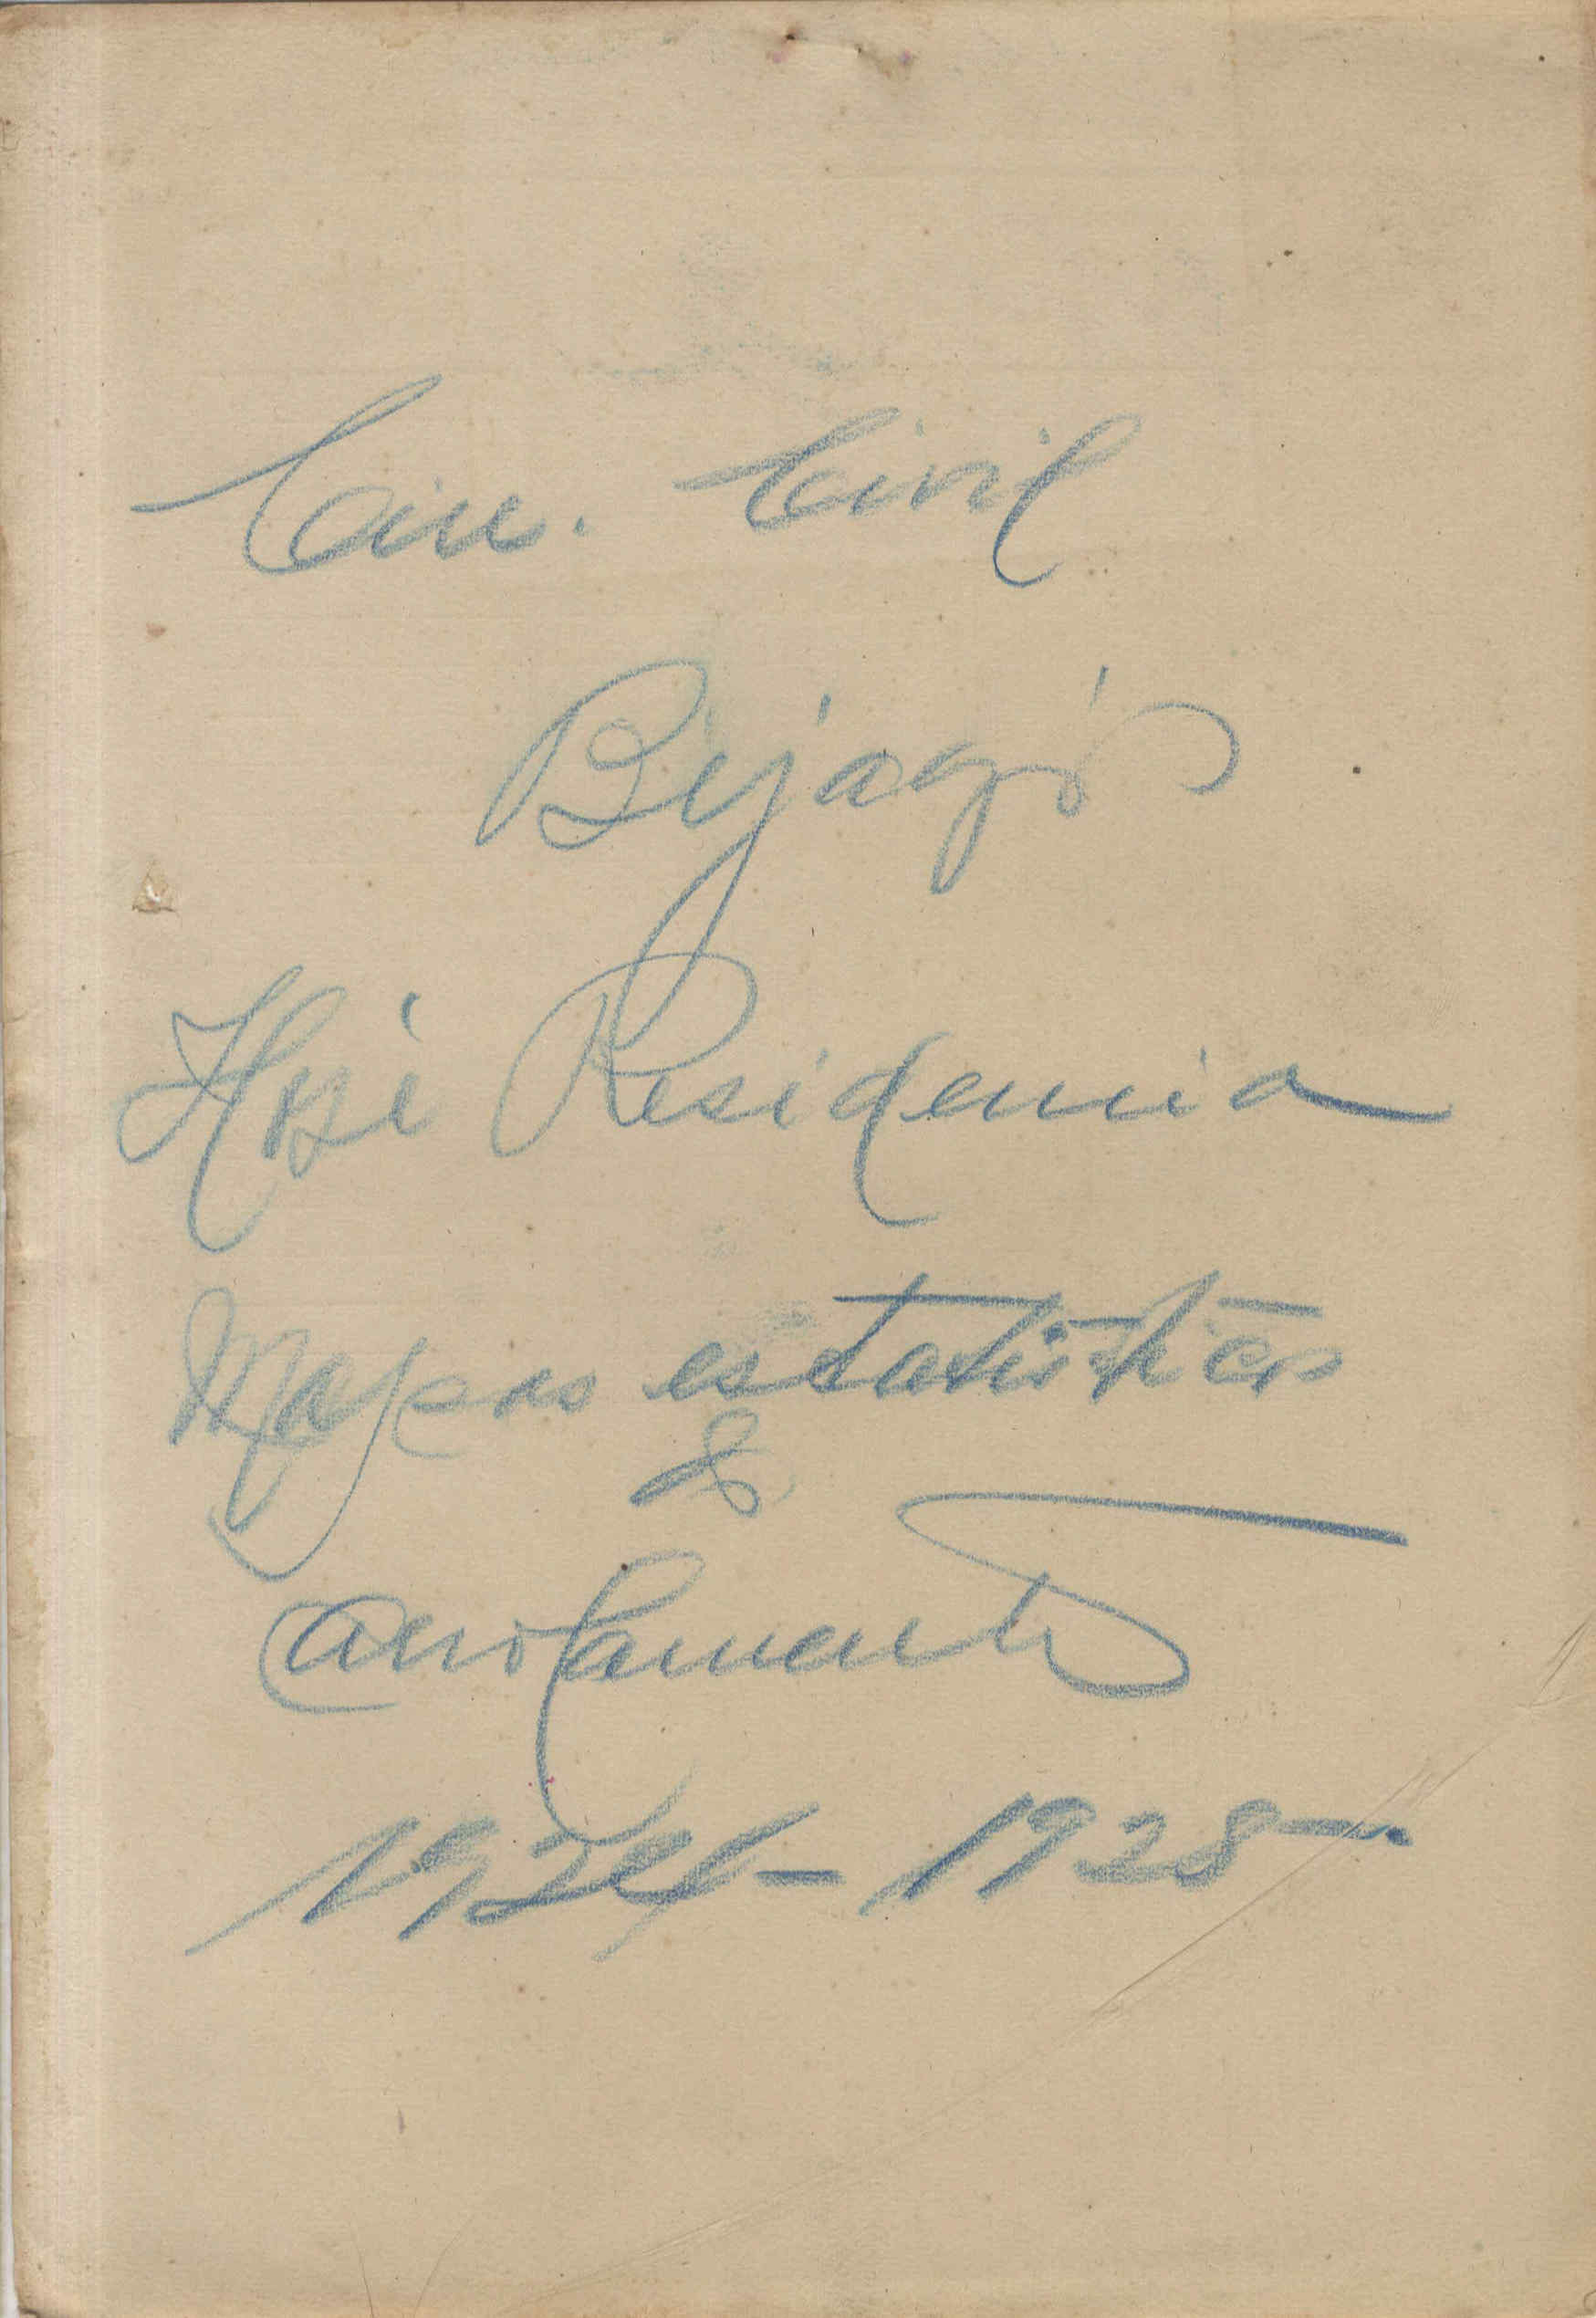 Circ. Civil
Bijagós
Residencia
Mapas estatisticos
&
Arrolamento
1924 - 1928 -